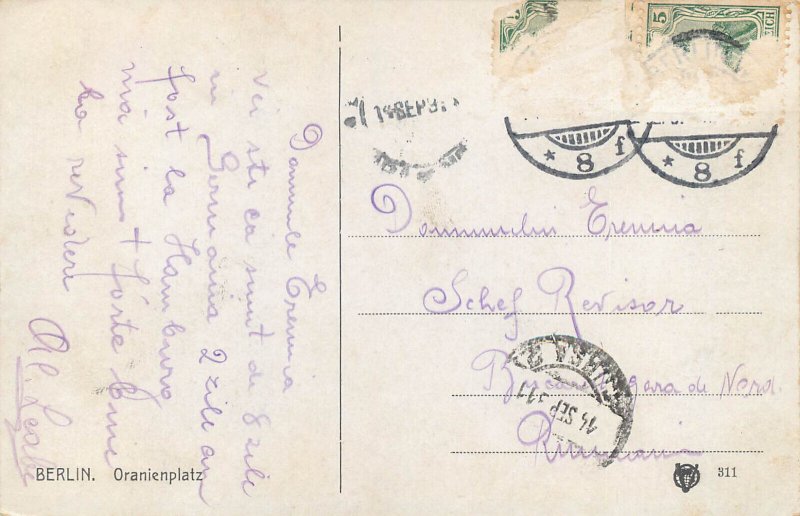 Domnule Eremia
Vei sti ca sunt de 8 zile
in Germania 2 zile am
fost la Hamburg
ma simt forte bine
la revedere
Al.
5
EICH
14 SEP 911
* 8 f
* 8 f
Domnului Eremia
Schef Revisor
gara de Nord.
Rumania
14 SEP 911
BERLIN. Oranienplatz
311